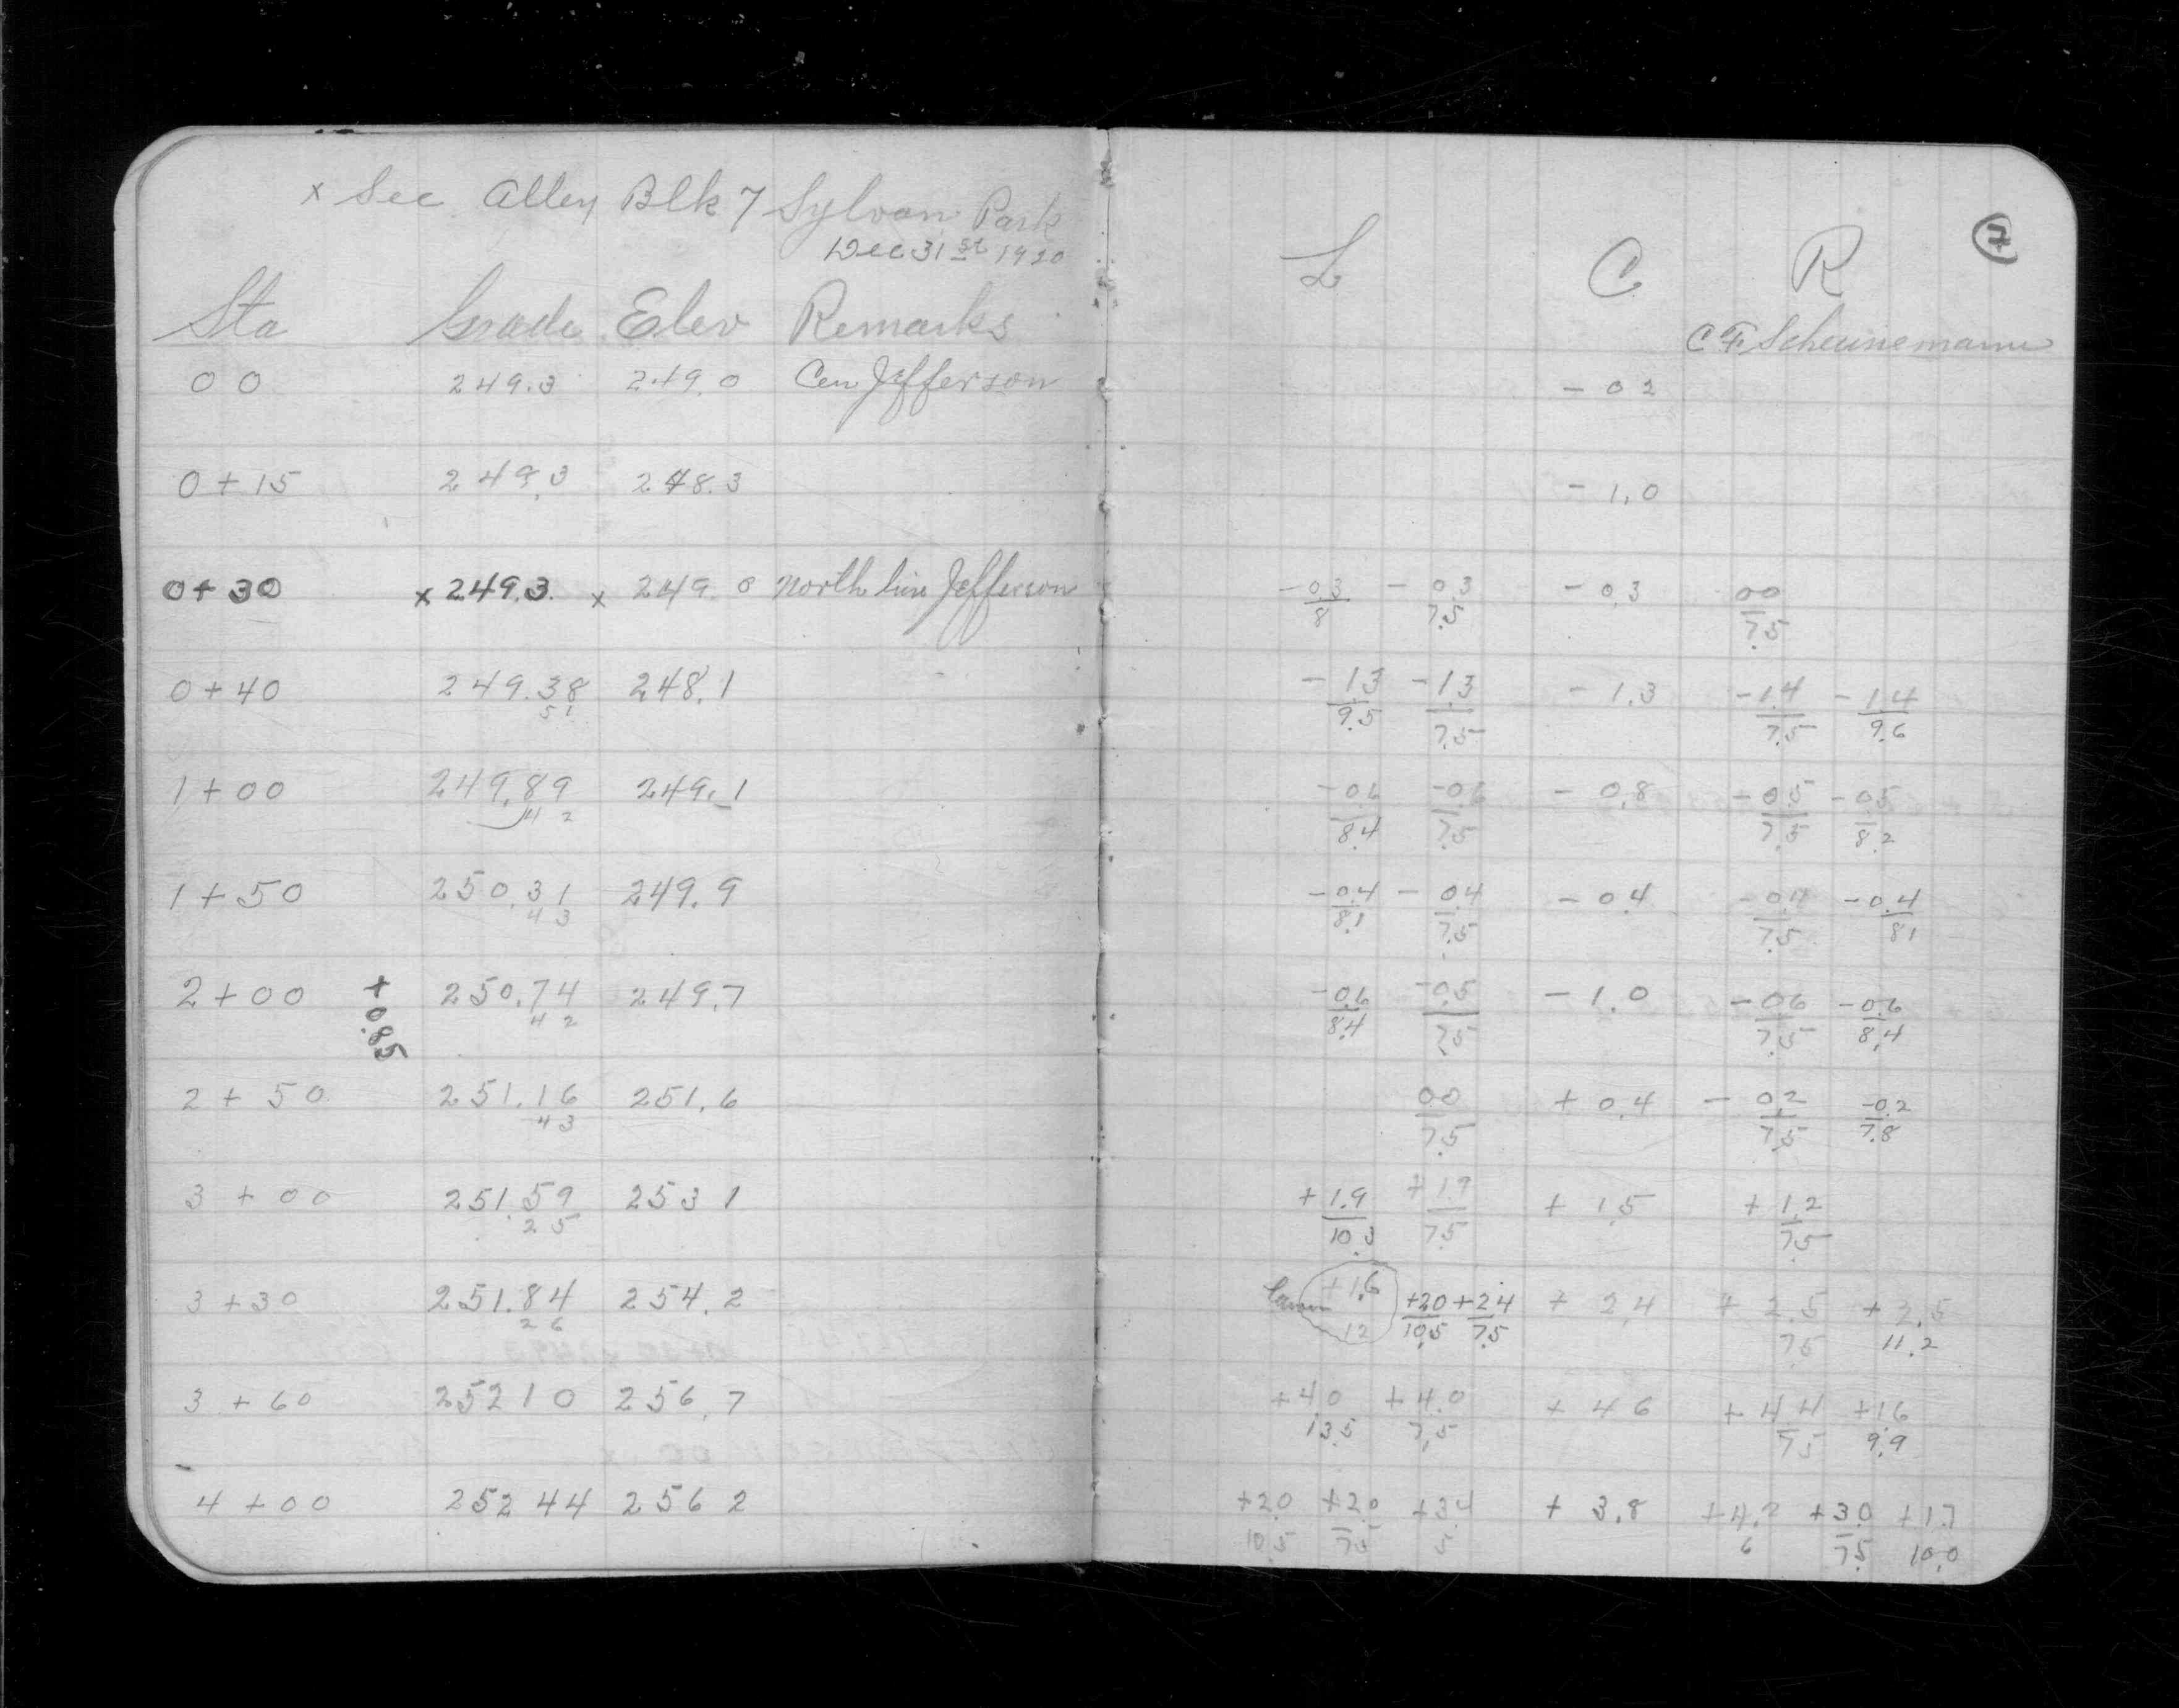 x Sec Alley Blk 7 Sylvan Park
Dec 31st 1920
Sta Grade Elev Remarks
00 249.3 249.0 Cen Jefferson
0+15 249.3 248.3
0+30 x 249.3 x 249 0 North line Jefferson
0+40 249.38 248.1
51
1+00 249.89 249.1
42
1+50 250.31 249.9
43
2+00 +0.85 250.74 249.7
42
2+50 251.16 251.6
43
3+00 251.59 253 1
25
3+30 251.84 254.2
26
3+60 252 10 256.7
4+00 252 44 256 2
7
L C R
C F Scheunemann
- 0 2
- 1.0
-0.3 - 0.3 - 0.3 00
8 7.5 7.5
-1.3 -1.3 - 1.3 -1.4 -1.4
9.5 7.5 7.5 9.6
-0.6 -0.6 - 0.8 -0.5 -0.5
8.4 7.5 7.5 8.2
-0.4 - 0.4 - 0.4 -0.4 -0.4
8.1 7.5 7.5 81
-0.6 -0.5 - 1.0 -06 -0.6
8.4 7.5 7.5 8.4
00 + 0.4 - 02 -0.2
7.5 7.5 7.8
+1.9 +1.9 + 1.5 + 1.2
10.3 7.5 7.5
+1.6 +20 +2.4 + 2.4 + 2.5 + 2.5
12 10.5 7.5 7.5 11.2
+4.0 +4.0 + 4 6 + 4 4 +1.6
13.5 7.5 7.5 9.9
+2.0 +2.0 +3.4 + 3.8 +4.2 +3.0 +1.7
10.5 7.5 5 6 7.5 10.0